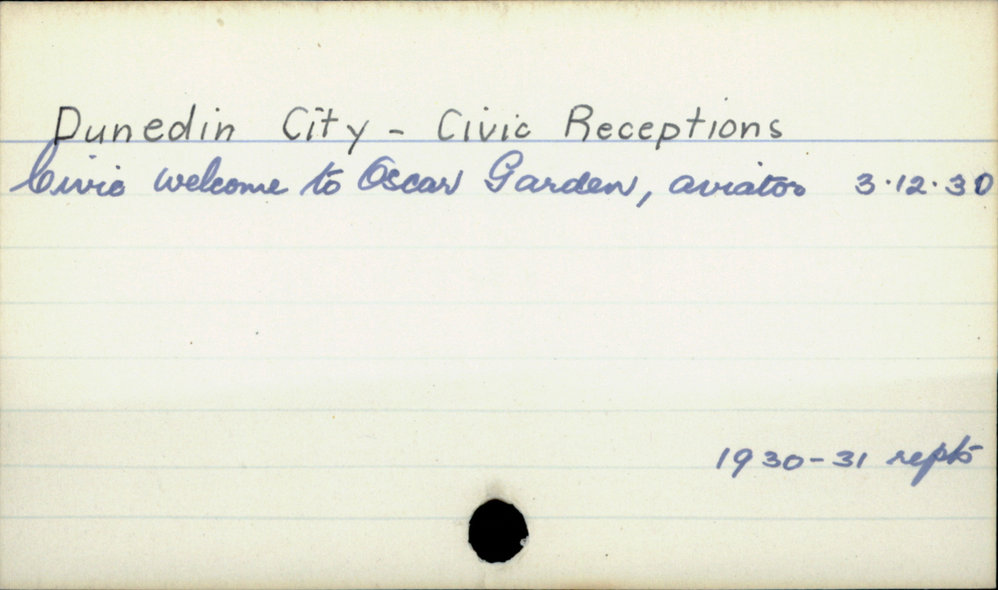 Dunedin City - Civic Receptions
Civic welcome to Oscar Garden, aviator 3.12.30
1930-31 repts